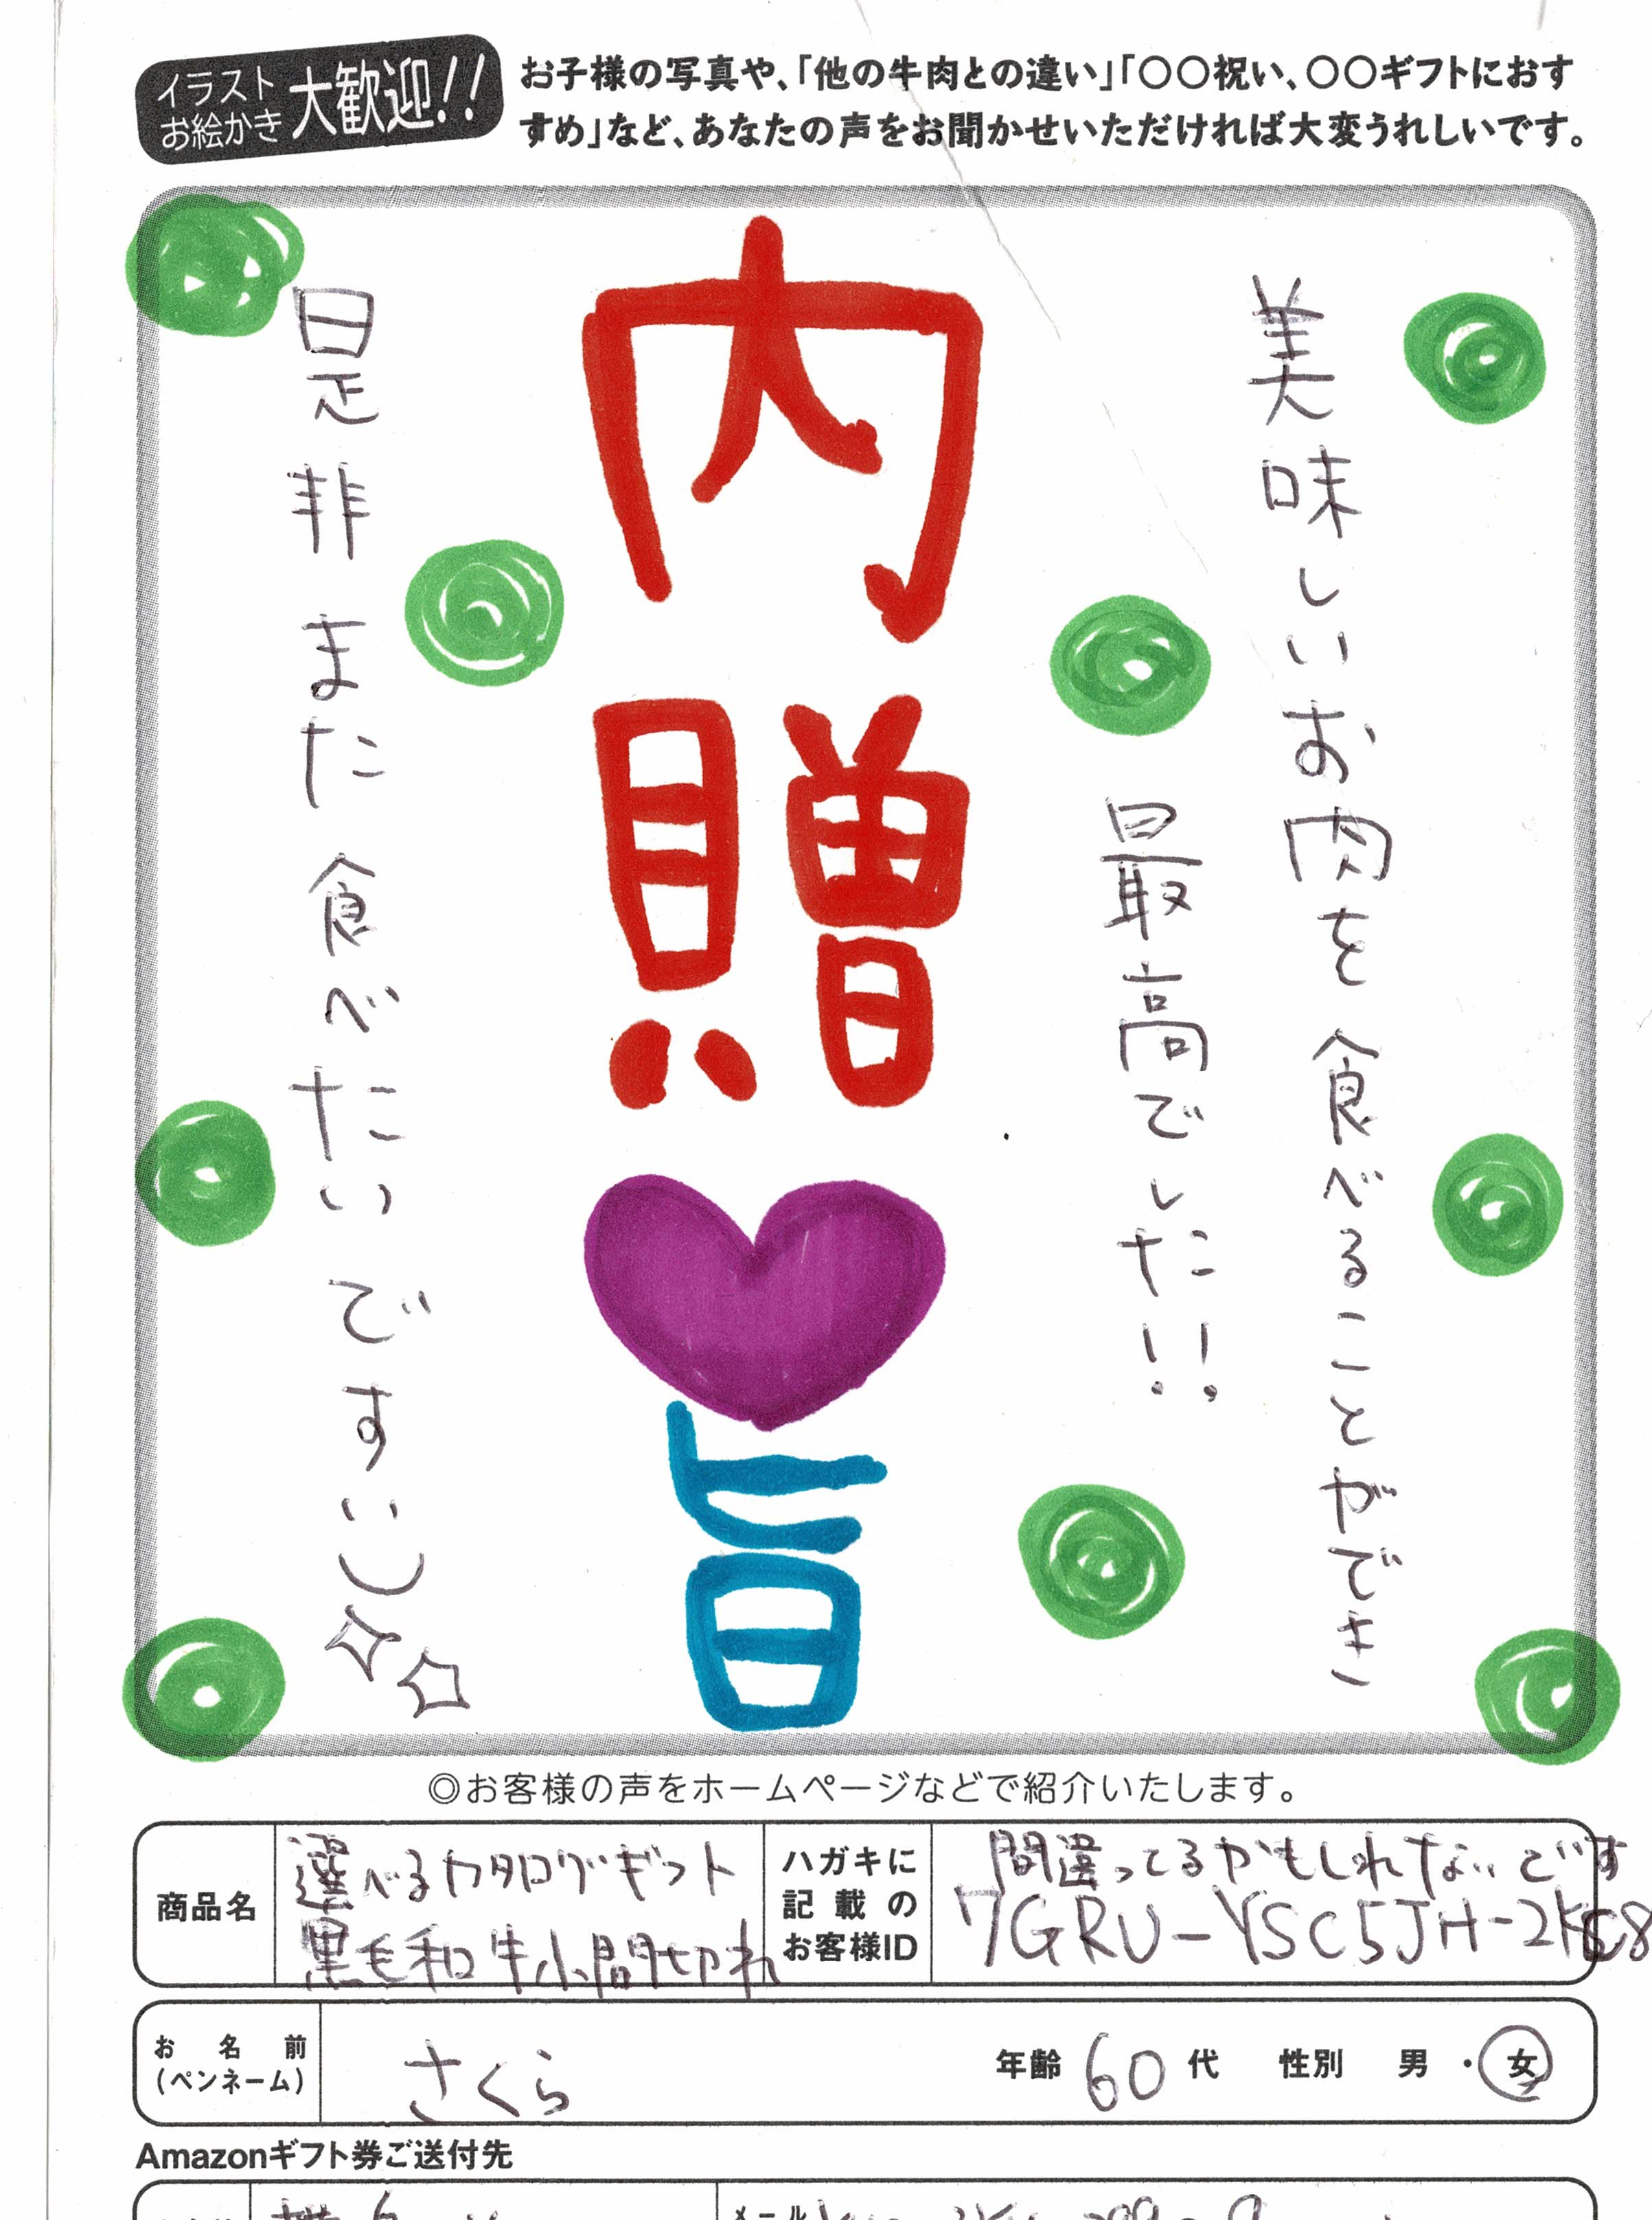 イラスト
お絵かき
大歓迎!!
お子様の写真や、「他の牛肉との違い」「〇〇祝い、〇〇ギフトにおす
すめ」など、あなたの声をお聞かせいただければ大変うれしいです。
美味しいお肉を食べることができ
最高でした!!
内贈♥旨
是非また食べたいです(い)☆☆
◎お客様の声をホームページなどで紹介いたします。
商品名
選べるカタログギフト
黒毛和牛小間切れ
ハガキに
記載の
お客様ID
間違ってるかもしれないです
7GRU-YSC5JH-2K
お名前
(ペンネーム)
さくら
年齢 60代 性別 男・女
Amazonギフト券ご送付先
メール